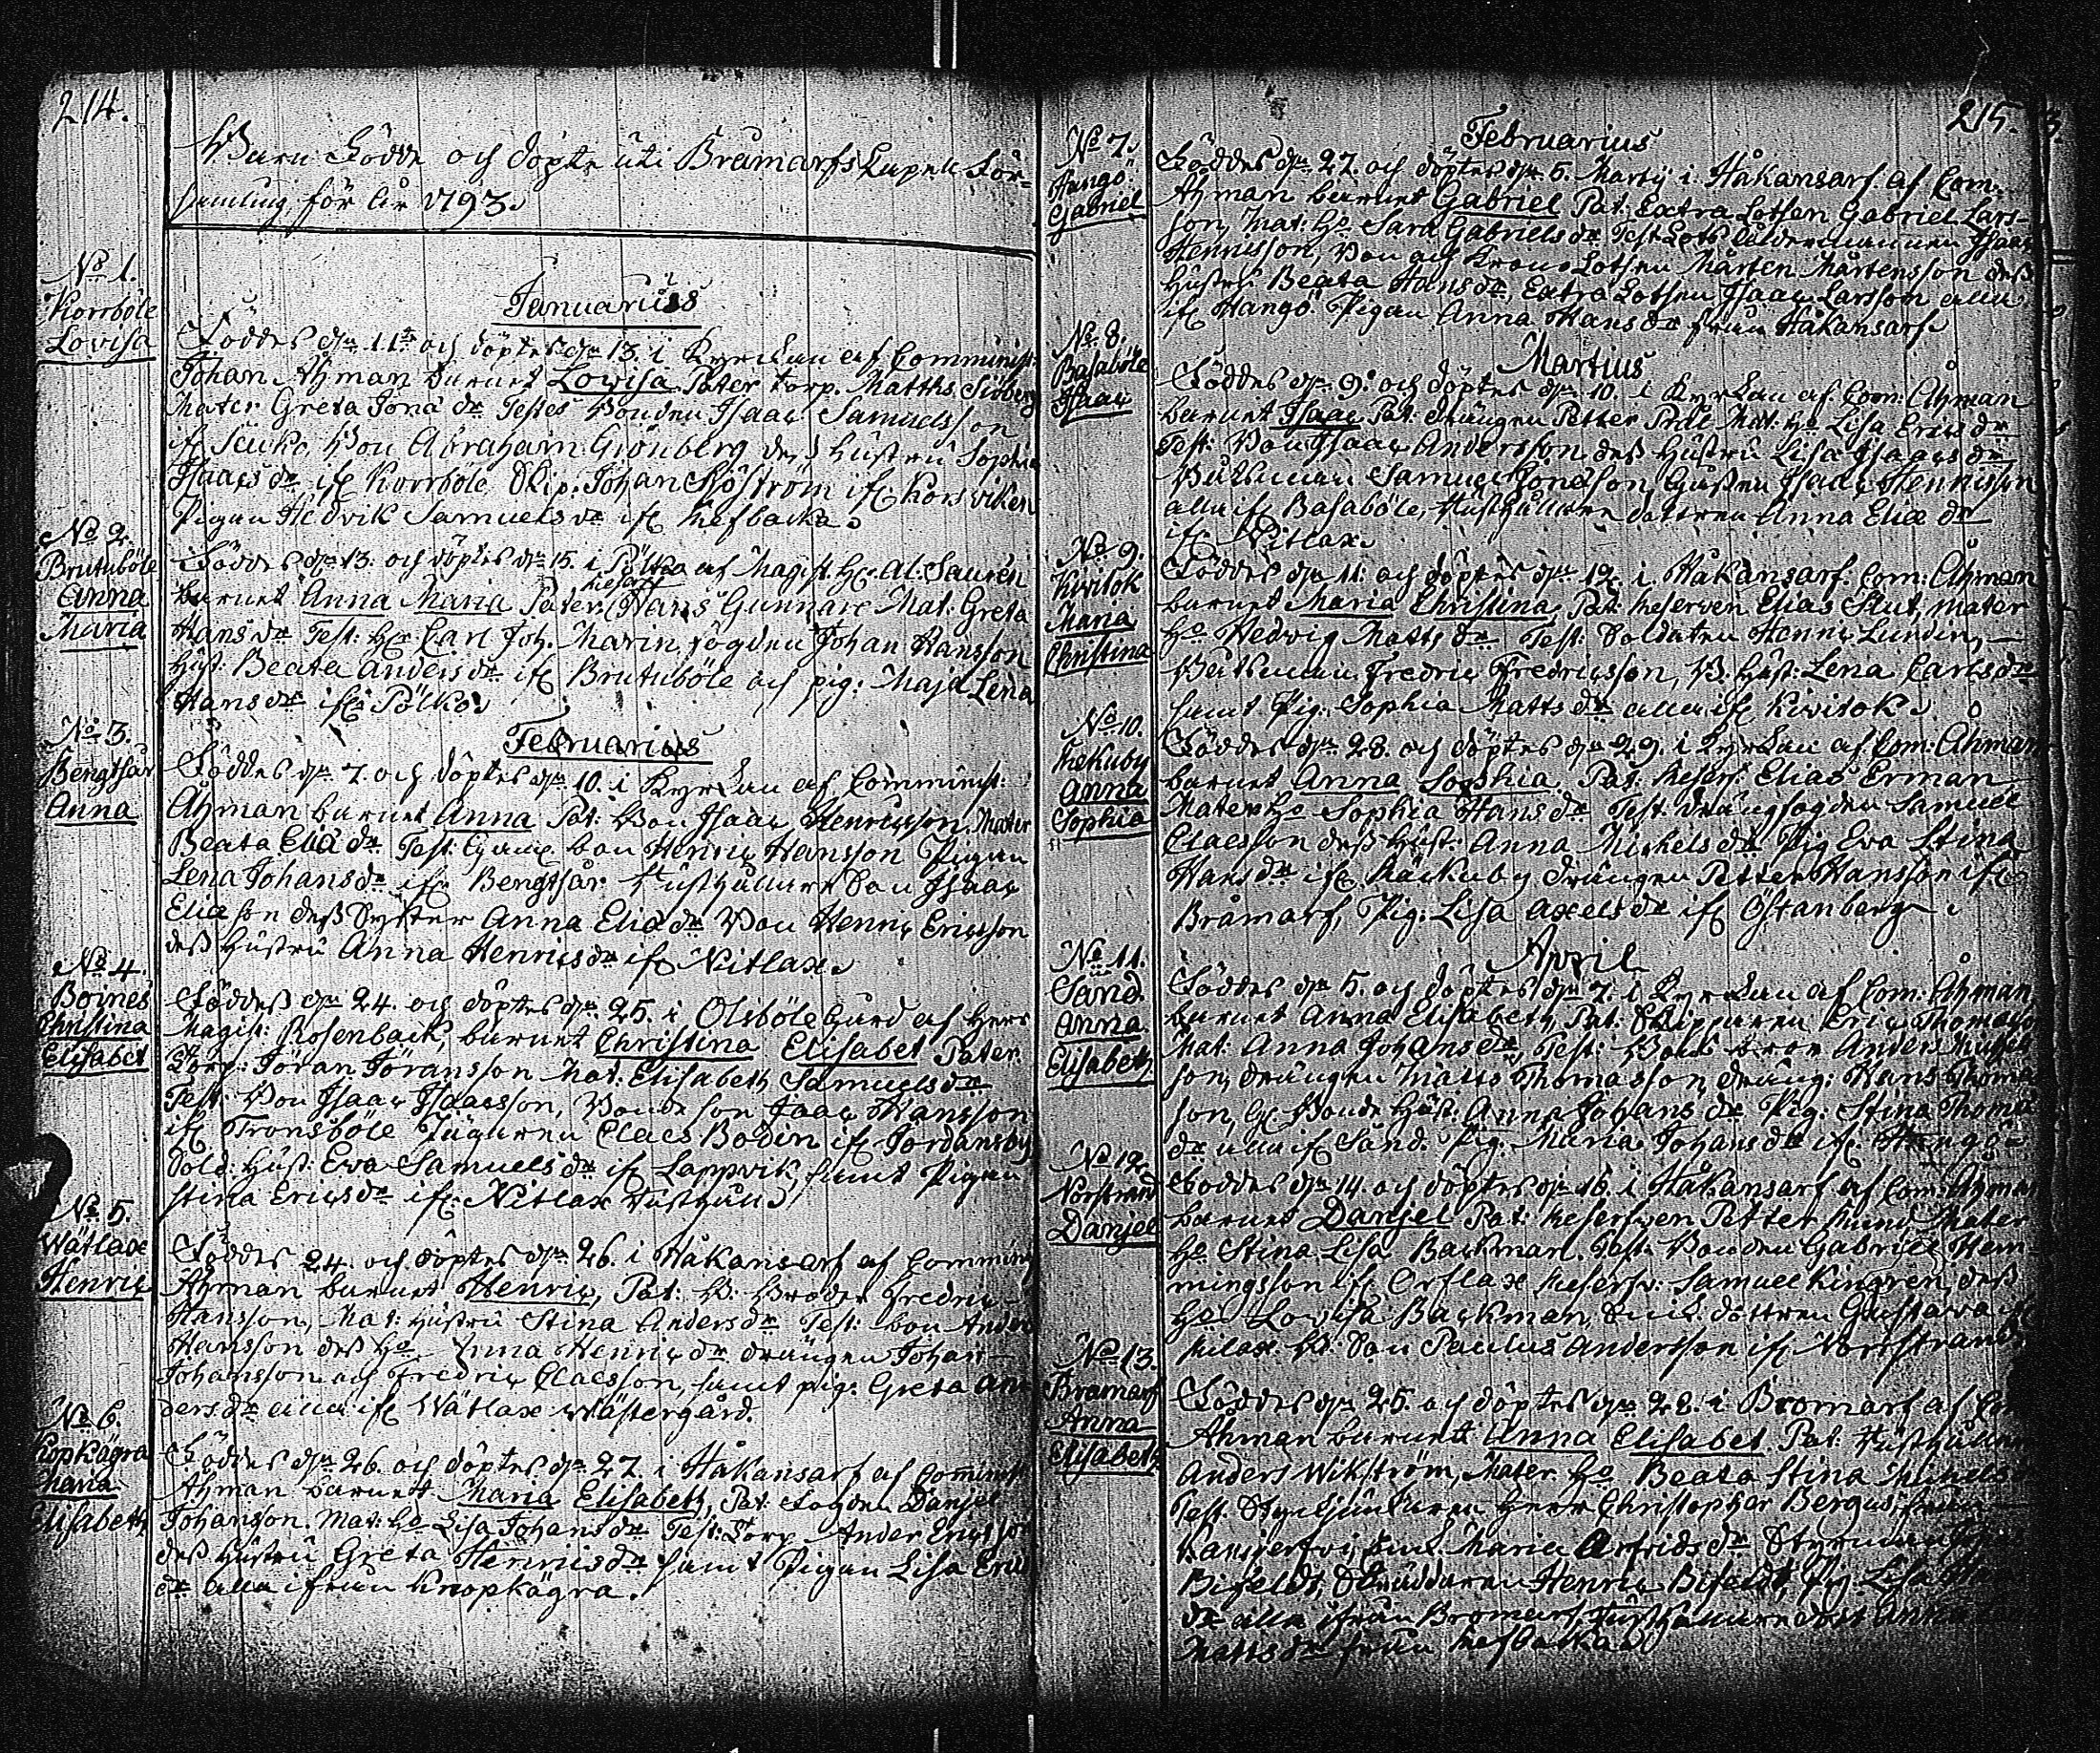 214.
Barn födde och döpte uti Bråmarfs Capell För-
samling för År 1793.
No 1.
Korrböle
Lovisa
Januarius
Föddes den 11te och döptes den 13. i Kyrckan af Comminist:
Johan Åhman barnet Lowisa Pater torp. Matths Siöberg
Mater Greta Jona dr Testes Bonden Isaac Samuelsson
if Bon Abraham Grönberg des hustru Sophia
Isaacs dr if Korrböle Skip. Johan Sjöström if Korsviken
Pigan Hedvik Samuels dr if Refbacka.
No 2.
Brutuböle
Anna
Maria
Föddes den 13. och döptes den 15. i Pölkio af Magist. Hr Al: Sauren
barnet Anna Maria Pater Reserf Hans Gunnare Mat. Greta
Hans dr Test: Hr Carl Joh. Marin fogden Johan Hansson
hust: Beata Anders dr if Brutuböle och pig: Maja Lena
Hans dr if Pölko.
No 3.
Bengtsår
Anna
Februarius
Föddes den 7. och döptes den 10. i Kyrckan af Comminist:
Åhman barnet Anna Pat: Bon Isaac Henricsson, Mater
Beata Elia dr Test: bon Henric Hansson Pigan
Lena Johans dr if Bengtsår Husthållare Son Isaac
Eliæson dess Syster Anna Elia dr Bon Henric Ericsson
dess hustru Anna Henrics dr if Nitlax.
No 4.
Boines
Christina
Elisabet
Föddes den 24. och döptes den 25. i Olsböle Gård af Herr
Magist: Rosenback, barnet Christina Elisabet Pater
Torp: Jöran Jöransson Mat: Elisabeth Samuels dr
Test: Bon Isaac Isaacsson, Bonde son Isaac Hansson
if Tronsböle Jägaren Claes Bodin if Jordansby
Sold: Hust: Eva Samuels dr if Lappvik, samt Pigan
Stina Erics dr if Nitlax
No 5.
Wätlax
Henric
Föddes 24. och döptes den 26. i Håkansarf af Comminis
Åhman barnet Henric, Pat: B: broder Fredric
Hansson, Mat: Hustru Stina Anders dr Test: bon Anders
Hansson des Ho Anna Henric dr drängen Johan
Johansson och Fredric Claesson, samt pig: Greta An-
ders dr alla if Wätlax Wästergård.
No 6.
Kopkägra
Maria
Elisabeth
Föddes den 26. och döptes den 27. i Håkansarf af Comminist
Åhman barnet Maria Elisabeth, Pat: Fogden Danjel
Johanson. Mat: Ho Lisa Johans dr Test: Torp Ander Ericsson
des hustru Greta Henrics dr samt Pigan Lisa Eric
dr alla ifrån Knopkägra.
215.
No 7.
Hangö
Gabriel
Februarius
Föddes den 27. och döptes den 5. Martij i Håkansarf af Com.
Åhman barnet Gabriel Pat: Extra Lotsen Gabriel Lars-
son, Mat: Ho Sara Gabriels dr Test Lots Åldermannen Isaac
Henricsson, Son och Krono Lotsen Mårten Mårtensson dess
hustru Beata Hans dr, Extra Lotsen Isaac Larsson alla
if Hangö. Pigan Anna Hans dr från Håkansarf.
No 8.
Basaböle
Isaac
Martius
Föddes den 9. och döptes den 10. i Kyrckan af Com: Åhman
barnet Isaac Pat: drängen Petter Prål Mat: Ho Lisa Erics dr
Test: Bon Isaac Andersson dess hustru Lisa Isaacs dr
Båtsman Samuel Gonasson, Isaac Henricsson
alla if Basaböle, Husthållare dottren Anna Eliæ dr
if Nitlax.
No 9.
Kivitok
Maria
Christina
Föddes den 11. och döptes den 12. i Håkansarf. Com: Åhman
barnet Maria Christina Pat: Reserven Elias Slut, Mater
Ho Hedvig Matts dr Test: Soldaten Henric Lundin,
Båtsman Fredric Fredricsson, B. Hust: Lena Carls dr
samt Pig. Sophia Matts dr alla if Kivitok.
No 10.
Rekuby
Anna
Sophia
Föddes den 28. och döptes den 29. i Kyrckan af Com: Åhman
barnet Anna Sophia Pat: Reserf: Elias Erman
Mater Ho Sophia Hans dr Test: drängfogden Samuel
Claesson dess hust: Anna Mickels dr Pig Eva Stina
Hans dr if Räckuby drängen Petter Hansson if
Bråmarf, Pig: Lisa Axels dr if Östanberg.
No 11.
Sand
Anna
Elisabeth
April
Föddes den 5. och döptes den 7. i Kyrckan af Com. Åhman
barnet Anna Elisabeth, Pat: Skipparen Eric Thomasson
Mat: Anna Johans dr Test: Bonde bror Anders
son, drängen Matts Thomasson, dräng: Hans Thoma
son, Bonde Hust: Anna Johans dr Pig: Stina Thoma
dr alla if Sand. Pig: Maria Johans dr if Hangö
No 12.
Norstrand
Danjel
Föddes den 14. och döptes den 16. i Håkansarf af Com: Åhman
barnet Danjel Pat: Reserfven Petter Rund Mater
Ho Stina Lisa Backman. Test: Bonden Gabriel Hem-
mingsson if Orflax Reserf: Samuel Kingren dess
Ho Lovisa Backman, dottren Gustava if
Rilax B. Son Paulus Andersson if Norrstrand.
No 13.
Bramarf
Anna
Elisabeth
Föddes den 25. och döptes den 28. i Bromarf af Com
Åhman barnet Anna Elisabet. Pat: Husthållare
Anders Wikström, Mater Ho Beata Stina Mikels
Test. Herr Christopher Bergius från
Maria Arfvids dr Styrman
Bifeldt, Skräddaren Henric Bifeldt, Pig Lisa
dr alla ifrån Bromarf, Husthållare dott Anna
Matts dr från Refbacka